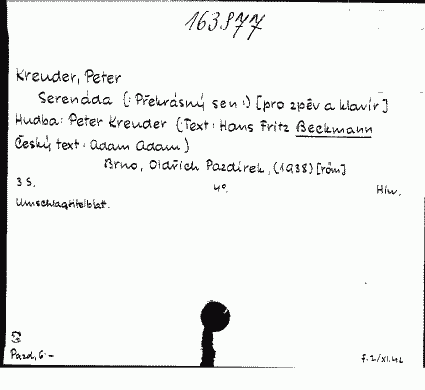 163877
Kreuder, Peter
Serenáda (: Překrásný sen :) [pro zpěv a klavír]
Hudba: Peter Kreuder (Text: Hans Fritz Beckmann
Český text: Adam Adam)
Brno, Oldřich Pazdírek, (1938) [röm]
3 S. 4°. Hlw.
Umschlagtitelblatt.
Pazd, 6.- f.2/XI.42